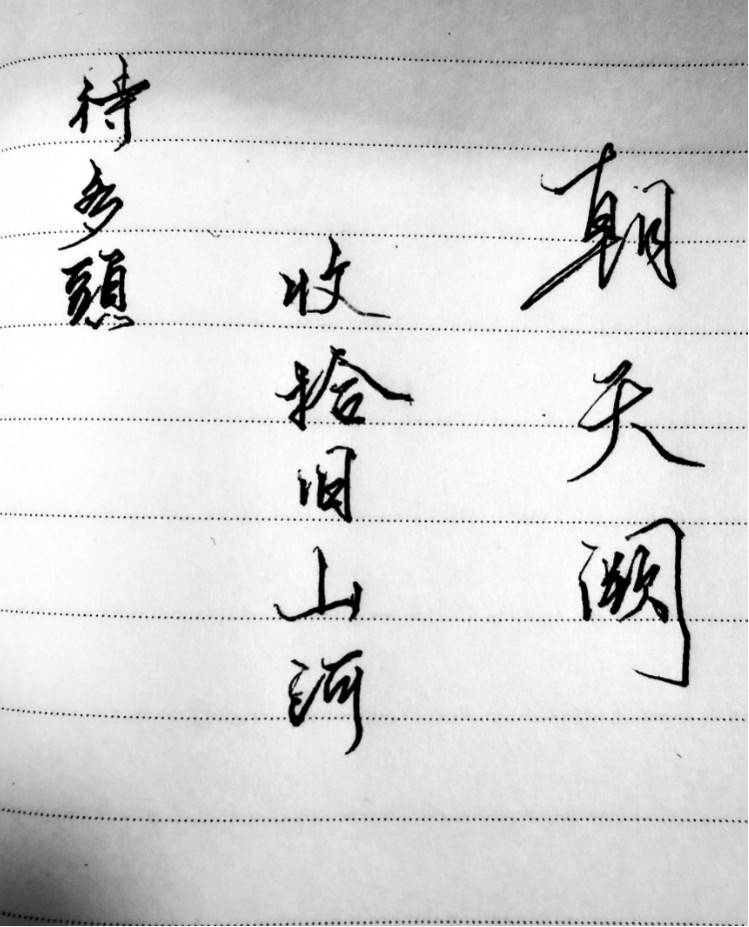 待从頭
收拾旧山河
朝天阙